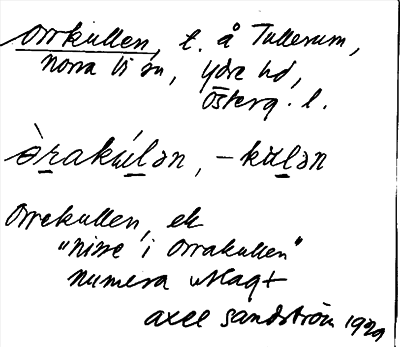 Orrkullen, t. å Tullerum,
Norra Vi sn, Ydre hd,
Österg. l.
òrakúlən, -kùlən
Orrekullen, ek
"nisse i Orrakullen"
numera utlagt
Axel Sandström 1929